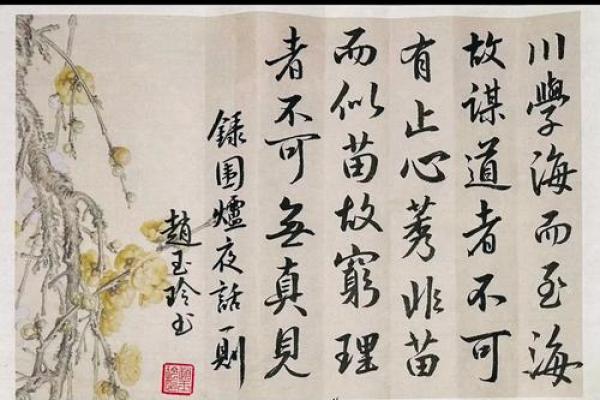 川學海而至海
故謀道者不可
有止心莠非苗
而似苗故窮理
者不可無真見
録围爐夜話一則
趙玉玲书